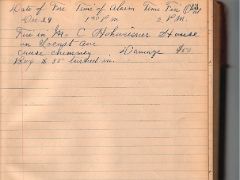 Date of Fire Time of Alarm Time Fire Out
Dec 29 1 30 P.m. 2 P.M.
Fire in Mr. C House
on Locust ave
cause chimney Damage $50
Boxy # 35 turned in.